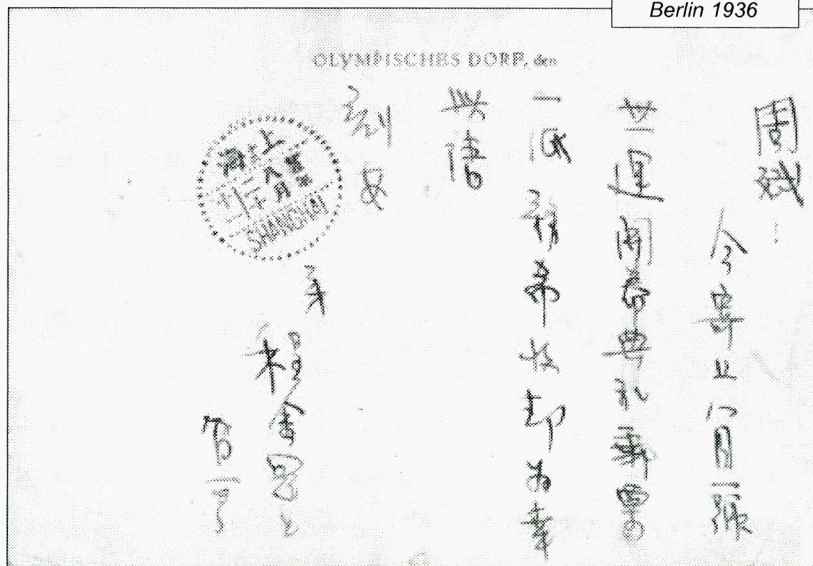 Berlin 1936
OLYMPISCHES DORF, den
周
今寄上八月一號
世運開幕典禮郵票
一紙希收却为幸
此請
安
弟
程金冠上
上海
SHANGHAI